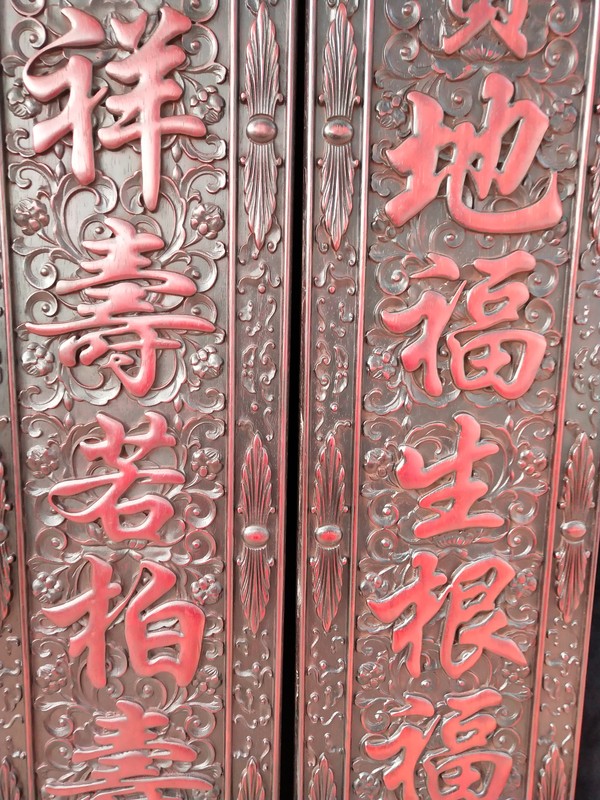 地福生根福
祥壽若柏壽